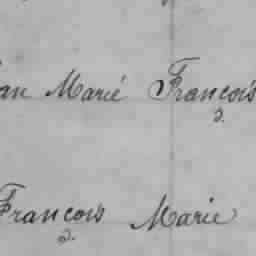 an Marié François
2.
François Marie
2.